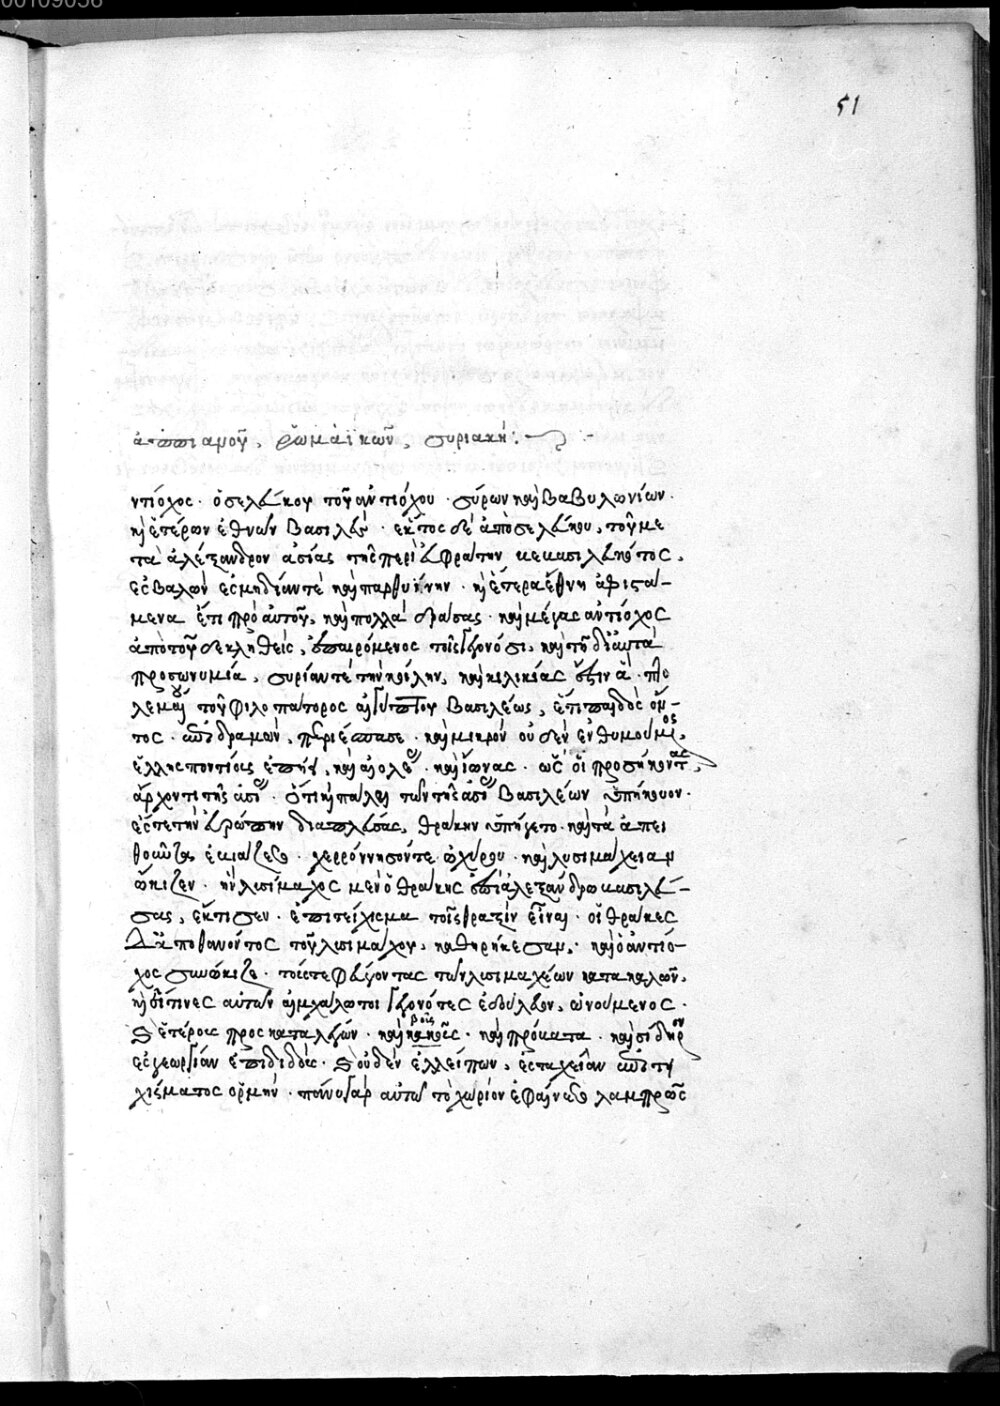 00109056
51
ἀππιανοῦ, ῥωμαϊκῶν, συριακή:
ντίοχος· ὁ σελεύκου τοῦ ἀντιόχου· σύρων καὶ βαβυλωνίων·
καὶ ἑτέρων ἐθνῶν βασιλεὺς· ἕκτος δὲ ἀπὸ σελεύκου, τοῦ με
τὰ ἀλέξανδρον ἀσίας τῆς περὶ εὐφράτην βεβασιλευκότος,
ἐσβαλὼν ἐς μηδίαν τὲ καὶ παρθυήνην· καὶ ἕτερα ἔθνη ἀφιστά-
μενα ἔτι πρὸ αὐτοῦ, καὶ πολλὰ δράσας· καὶ μέγας ἀντίοχος
ἀπὸ τοῦδε κληθεὶς, ἐπαιρόμενος τοῖς γεγονόσι, καὶ τῇ δι' αὐτὰ
προσωνυμία, συρίαν τὲ τὴν κοίλην, καὶ κιλικίας ἔστιν ἃ· πτο
λεμαίου τοῦ φιλοπάτορος αἰγύπτου βασιλέως, ἔτι παιδὸς ὄν-
τος· ἐπιδραμὼν, περιέσπασε· καὶ μικρὸν οὐδὲν ἐνθυμούμενος,
ἑλλησποντίοις ἐπῄει, καὶ αἰολεῦσι· καὶ ἴωνας· ὡς οἱ προσήκοντας,
ἄρχοντι τῆς ἀσίας· ὅτι καὶ πάλαι τῶν τῆς ἀσίας βασιλέων ὑπήκουον·
ἔς τε τὴν εὐρώπην διαπλεύσας, θράκην ὑπήγετο· καὶ τὰ ἀπει
θοῦντα ἐβιάζετο· χερρόννησόν τε ὠχύρου· καὶ λυσιμάχειαν
ᾤκιζεν· ἣν λυσίμαχος μὲν ὁ θράκης ἐπὶ ἀλεξάνδρω βασιλεύ-
σας, ἔκτισεν· ἐπιτείχισμα τοῖς θραξὶν εἶναι· οἱ θρᾶκες
δὲ ἀποθανόντος τοῦ λυσιμάχου, καθηρήκεσαν,· καὶ ὁ ἀντίο-
χος συνώκιζε· τούς τε φεύγοντας τῶν λυσιμαχέων κατακαλῶν,
καὶ εἴτινες αὐτῶν αἰχμάλωτοι γεγονότες ἐδούλευον, ὠνούμενος·
καὶ ἑτέρους προσκαταλέγων· καὶ βοῦς· καὶ πρόβατα· καὶ σίδηρον
ἐς γεωργίαν ἐπιδιδούς· καὶ οὐδὲν ἐλλείπων, ἐς ταχεῖαν ἐπιτει
χίσματος ὁρμήν· πάνυ γὰρ αὐτῶ τὸ χωρίον ἐφαίνετο λαμπρῶς